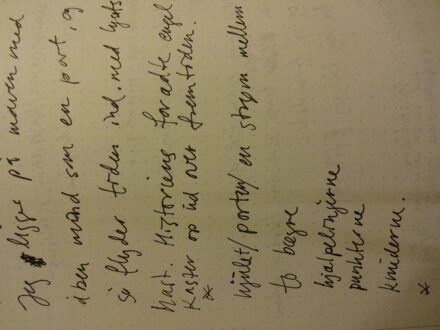 Jeg ligge på maven med
åben mund som en port, og
så flyder tiden ind. med lysets
hast. Historiens forædte engel
Kaster op ind over fremtiden.
*
hjulet/porten/en strøm mellem
to bægre
hjælpelinjerne
punkterne
kniderne.
*